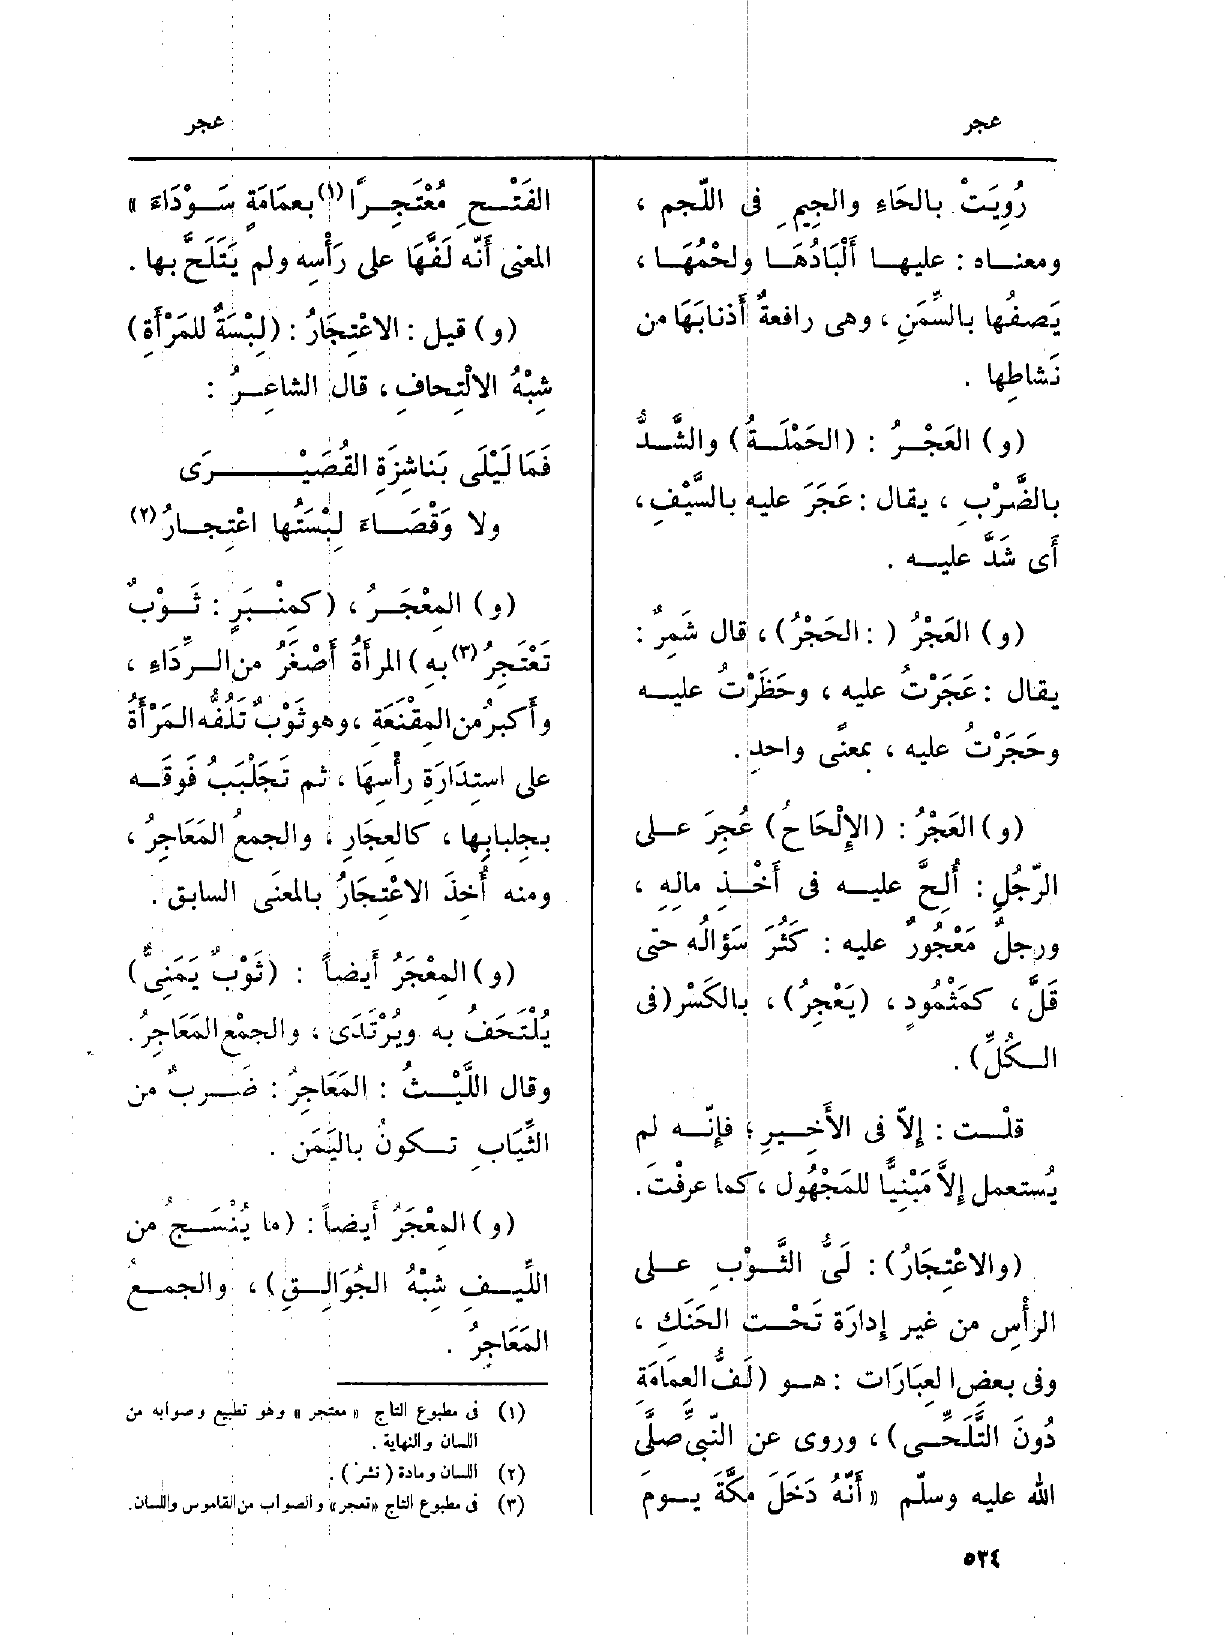 عجر
عجر
رُوِيَتْ بالحَاءِ والجِيمِ فى اللّجم ،
ومعناه : عليها أَلْبَادُهَا ولحْمُهَا ،
يَصفُها بالسِّمَنِ ، وهى رافعةٌ أَذنابَهَا من
نَشاطِها .
(و) العَجْرُ : (الحَمْلَةُ) والشَّدُّ
بالضَّرْبِ ، يقال : عَجَرَ عليه بالسَّيْفِ ،
أَى شَدَّ عليه .
(و) العَجْرُ ( : الحَجْرُ) ، قال شَمِرٌ :
يقال : عَجَرْتُ عليه ، وحَظَرْتُ عليه
وحَجَرْتُ عليه ، بمعنًى واحدٍ .
(و) العَجْرُ : (الإِلْحَاحُ) عُجِرَ على
الرّجُلِ : أُلِحَّ عليه فى أَخْذِ مالِهِ ،
ورجلٌ مَعْجُورٌ عليه : كَثُرَ سَؤالُه حتى
قَلَّ ، كمَثْمُودٍ ، (يَعْجِرُ) ، بالكَسْر (فى
الكُلِّ) .
قلْت : إِلاّ فى الأَخيرِ ؛ فإِنّه لم
يُستعمل إِلاَّ مَبْنِيًّا للمَجْهُول ، كما عرفْتَ .
(والاعْتِجَارُ) : لَىُّ الثَّوْبِ على
الرأْسِ من غير إِدارَة تَحْت الحَنَكِ ،
وفى بعضِ العِبَارَات : هو (لَفُّ العمَامَةِ
دُونَ التَّلَحِّى) ، وروى عن النّبىِّ صلَّى
الله عليه وسلّم «أَنّهُ دَخَلَ مَكَّةَ يومَ
الفَتْحِ مُعْتَجِرًا (١) بعمَامَةٍ سَوْدَاءَ »
المعنى أَنّه لَفَّهَا على رَأْسِه ولم يَتَلَحَّ بها .
(و) قيل : الاعْتِجَارُ : (لِبْسَةٌ للمَرْأَةِ)
شِبْهُ الالْتِحافِ ، قال الشاعِرُ :
فَمَا لَيْلَى بَناشِزَةِ القُصَيْرَى
ولا وَقْصَاءَ لِبْسَتُها اعْتِجارُ (٢)
(و) المِعْجَرُ ، (كمِنْبَرٍ : ثَوْبٌ
تَعْتَجِرُ (٣) به) المرأَةُ أَصْغَرُ من الرِّدَاءِ ،
وأَكبرُ من المِقْنَعَة ، وهو ثَوْبٌ تَلُفُّه المَرْأَةُ
على استِدَارَةِ رأْسِهَا ، ثم تَجَلْبَبُ فَوقَه
بجلبابِها ، كالعِجَارِ ، والجمعُ المَعَاجِرُ ،
ومنه أُخِذَ الاعْتِجَارُ بالمعنَى السابق .
(و) المِعْجَرُ أَيضاً : (ثَوْبٌ يَمَنىٌّ)
يُلْتَحَفُ به ويُرْتَدَى ، والجمْع المَعَاجِرُ .
وقال اللَّيْثُ : المَعَاجِرُ : ضَربٌ من
الثِّيَابِ تكونُ باليَمَن .
(و) المِعْجَرُ أَيضاً : (ما يُنْسَجُ من
اللِّيفِ شِبْهُ الجُوَالِقِ) ، والجمعُ
المَعَاجِرُ .
(١) فى مطبوع التاج «معتجر» وهو تطبيع وصوابه من
اللسان والنهاية .
(٢) اللسان ومادة (نشز) .
(٣) فى مطبوع التاج «تعجر» والصواب من القاموس واللسان .
٥٣٤